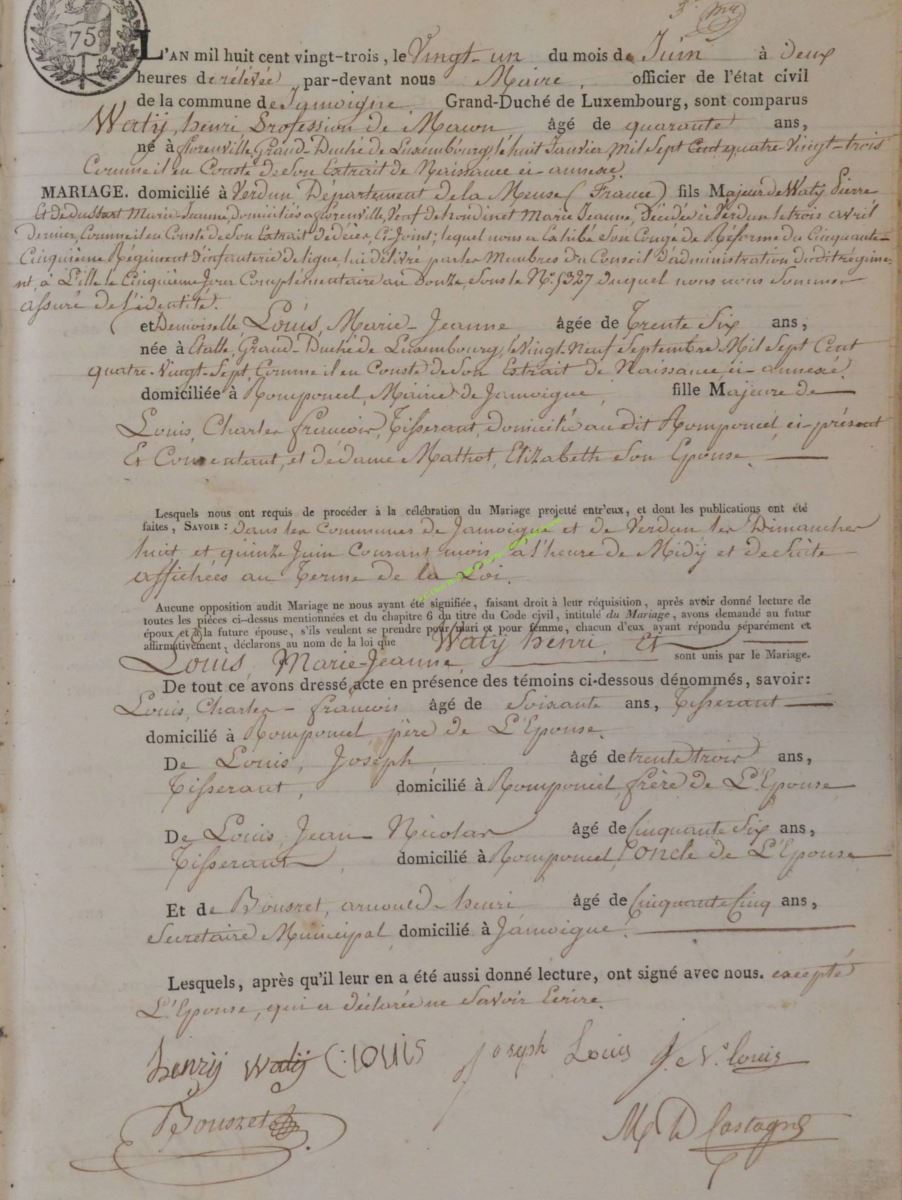 75
L'AN mil huit cent vingt-trois, le Vingt-un du mois de Juin à deux
heures de relevée par-devant nous Maire, officier de l'état civil
de la commune de Jamoigne, Grand-Duché de Luxembourg, sont comparus
Watÿ, henri Profession de Macon âgé de quarante ans,
né à florenville, Grand-Duché de Luxembourg, le huit Janvier Mil Sept Cent quatre-Vingt-trois
Comme il en Conste de Son Extrait de Naissance ci-annexé.
MARIAGE. domicilié à Verdun Département de la Meuse (France) fils Majeur de Watÿ Pierre
Et de dussart Marie-Jeanne, domiciliés a florenville, Veuf de hondinet Marie Jeanne, Décédée à Verdun le trois avril
Dernier, Comme il en Conste de Son Extrait de décès, Ci-Joint; lequel nous a Exhibé Son Congé de Réforme du Cinquante-
Cinquième Régiment d'infanterie de ligne, lui délivré par les Membres du Conseil d'administration dudit régime-
nt, à Lille le Cinquième Jour Complémentaire an Douze, Sous le N.° 1327 duquel nous nous Sommes
assuré de l'identité.
et Demoiselle, Louis, Marie-Jeanne âgée de Trente Six ans,
née à Etalle, Grand-Duché de Luxembourg, le Vingt-Neuf Septembre Mil Sept Cent
quatre-Vingt-Sept Comme il en Conste de Son Extrait de Naissance, ci-annexé.
domiciliée à Romponcel, Mairie de Jamoigne, fille Majeure de
Louis, Charles francois, Tisserant, domicilié au dit Romponcel, ci-présent
Et Consentant, et de dame Mathot, Elizabeth Son Epouse.
Lesquels nous ont requis de procéder à la célébration du Mariage projetté entr'eux, et dont les publications ont été
faites, SAVOIR : dans les Communes de Jamoigne et de Verdun les Dimanches
huit et quinze Juin Courant mois, à l'heure de Midÿ et de Suite
affichées au Terme de la Loi.
Aucune opposition audit Mariage ne nous ayant été signifiée, faisant droit à leur réquisition, après avoir donné lecture de
toutes les pièces ci-dessus mentionnées et du chapitre 6 du titre du Code civil, intitulé du Mariage, avons demandé au futur
époux et à la future épouse, s'ils veulent se prendre pour mari et pour femme, chacun d'eux ayant répondu séparément et
affirmativement, déclarons au nom de la loi que Watÿ henri, Et
Louis, Marie-Jeanne, sont unis par le Mariage.
De tout ce avons dressé acte en présence des témoins ci-dessous dénommés, savoir:
Louis, Charles-francois âgé de Soixante ans, Tisserant
domicilié à Romponcel père de L'Epouse
De Louis, Joseph, âgé de trente trois ans,
Tisserant, domicilié à Romponcel, frère de L'Epouse
De Louis Jean-Nicolas âgé de Cinquante Six ans,
Tisserant domicilié à Romponcel, oncle de L'Epouse
Et de Bouzret, arnould-henri âgé de Cinquante Cinq ans,
Secretaire Municipal, domicilié à Jamoigne.
Lesquels, après qu'il leur en a été aussi donné lecture, ont signé avec nous. excepté
L'Epouse, qui a déclarée ne Savoir Ecrire.
henrÿ watÿ C: louis Joseph Louis J. N.s louis
Bouzret M D Castagne